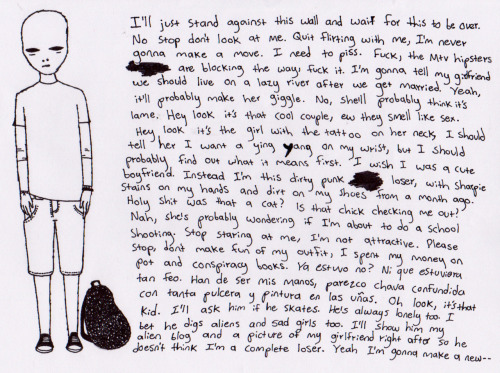 I'll just stand against this wall and wait for this to be over.
No stop don't look at me. Quit flirting with me, I'm never
gonna make a move. I need to piss. Fuck, the Mtv hipsters
are blocking the way, fuck it. I'm gonna tell my girlfriend
we should live on a lazy river after we get married. Yeah,
it'll probably make her giggle. No, she'll probably think it's
lame. Hey look it's that cool couple, ew they smell like sex.
Hey look it's the girl with the tattoo on her neck, I should
tell her I want a ying yang on my wrist, but I should
probably find out what it means first. I wish I was a cute
boyfriend. Instead I'm this dirty punk loser, with Sharpie
stains on my hands and dirt on my shoes from a month ago.
Holy shit was that a cat? Is that chick checking me out?
Nah, she's probably wondering if I'm about to do a school
shooting. Stop staring at me, I'm not attractive. Please
stop, dont make fun of my outfit, I spent my money on
pot and conspiracy books. Ya estuvo no? Ni que estuviera
tan feo. Han de ser mis manos, parezco chava confundida
con tanta pulcera y pintura en las uñas. Oh look, it's that
kid. I'll ask him if he skates. He's always lonely too. I
bet he digs aliens and sad girls too. I'll show him my
alien blog and a picture of my girlfriend right after so he
doesn't think I'm a complete loser. Yeah I'm gonna make a new--